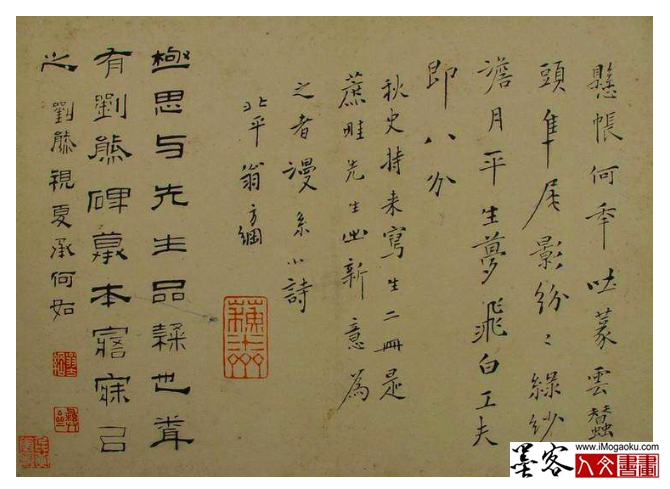 懸帳何秊吐篆雲蠶
頭隼尾影紛〻綠紗
澹月平生夢飛白工夫
即八分
秋史持来寫生二冊是
蔗畦先生出新意為
之者謾系小詩
北平翁方綱
極思与先生品隸也
有劉熊碑摹本寤寐㠯
之劉熊視夏承何如
www.iMogaoku.com
墨客
人文書畫